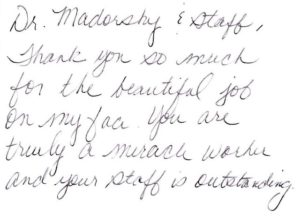 Dr. Madorsky & Staff,
Thank you so much
for the beautiful job
on my face. You are
truely a miracle worker
and your staff is outstanding.